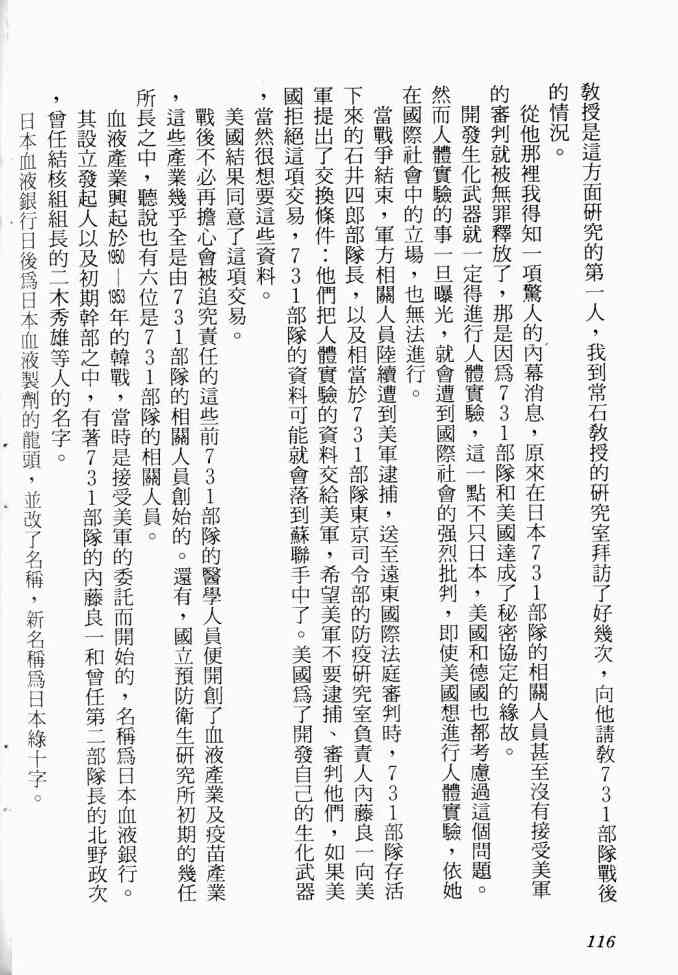 教授是這方面研究的第一人，我到常石教授的研究室拜訪了好幾次，向他請教731部隊戰後
的情況。
從他那裡我得知一項驚人的內幕消息，原來在日本731部隊的相關人員甚至沒有接受美軍
的審判就被無罪釋放了，那是因爲731部隊和美國達成了秘密協定的緣故。
開發生化武器就一定得進行人體實驗，這一點不只日本，美國和德國也都考慮過這個問題。
然而人體實驗的事一旦曝光，就會遭到國際社會的强烈批判，即使美國想進行人體實驗，依她
在國際社會中的立場，也無法進行。
當戰爭結束，軍方相關人員陸續遭到美軍逮捕，送至遠東國際法庭審判時，731部隊存活
下來的石井四郎部隊長，以及相當於731部隊東京司令部的防疫研究室負責人內藤良一向美
軍提出了交換條件：他們把人體實驗的資料交給美軍，希望美軍不要逮捕、審判他們，如果美
國拒絕這項交易，731部隊的資料可能就會落到蘇聯手中了。美國爲了開發自己的生化武器
，當然很想要這些資料。
美國結果同意了這項交易。
戰後不必再擔心會被追究責任的這些前731部隊的醫學人員便開創了血液產業及疫苗產業
，這些產業幾乎全是由731部隊的相關人員創始的。還有，國立預防衛生研究所初期的幾任
所長之中，聽說也有六位是731部隊的相關人員。
血液產業興起於1950—1953年的韓戰，當時是接受美軍的委託而開始的，名稱爲日本血液銀行。
其設立發起人以及初期幹部之中，有著731部隊的內藤良一和曾任第二部隊長的北野政次
，曾任結核組組長的二木秀雄等人的名字。
日本血液銀行日後爲日本血液製劑的龍頭，並改了名稱，新名稱爲日本綠十字。
116